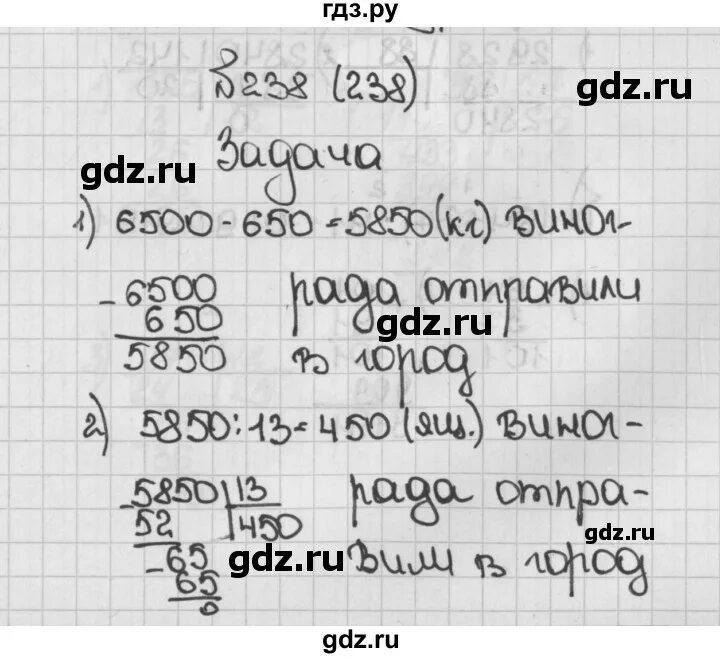 гдз.ру
№238 (238)
gdz.ru
Задача
gdz.ru
1) 6500-650=5850(кг) виног-
- 6500 рада отправили
650
gdz.ru
5850 в город
2) 5850:13=450 (ящ.) виног-
- 5850 13 рада отпра-
52 450
gdz.ru
- 65 вили в город
gdz.ru
65
0
gdz.ru